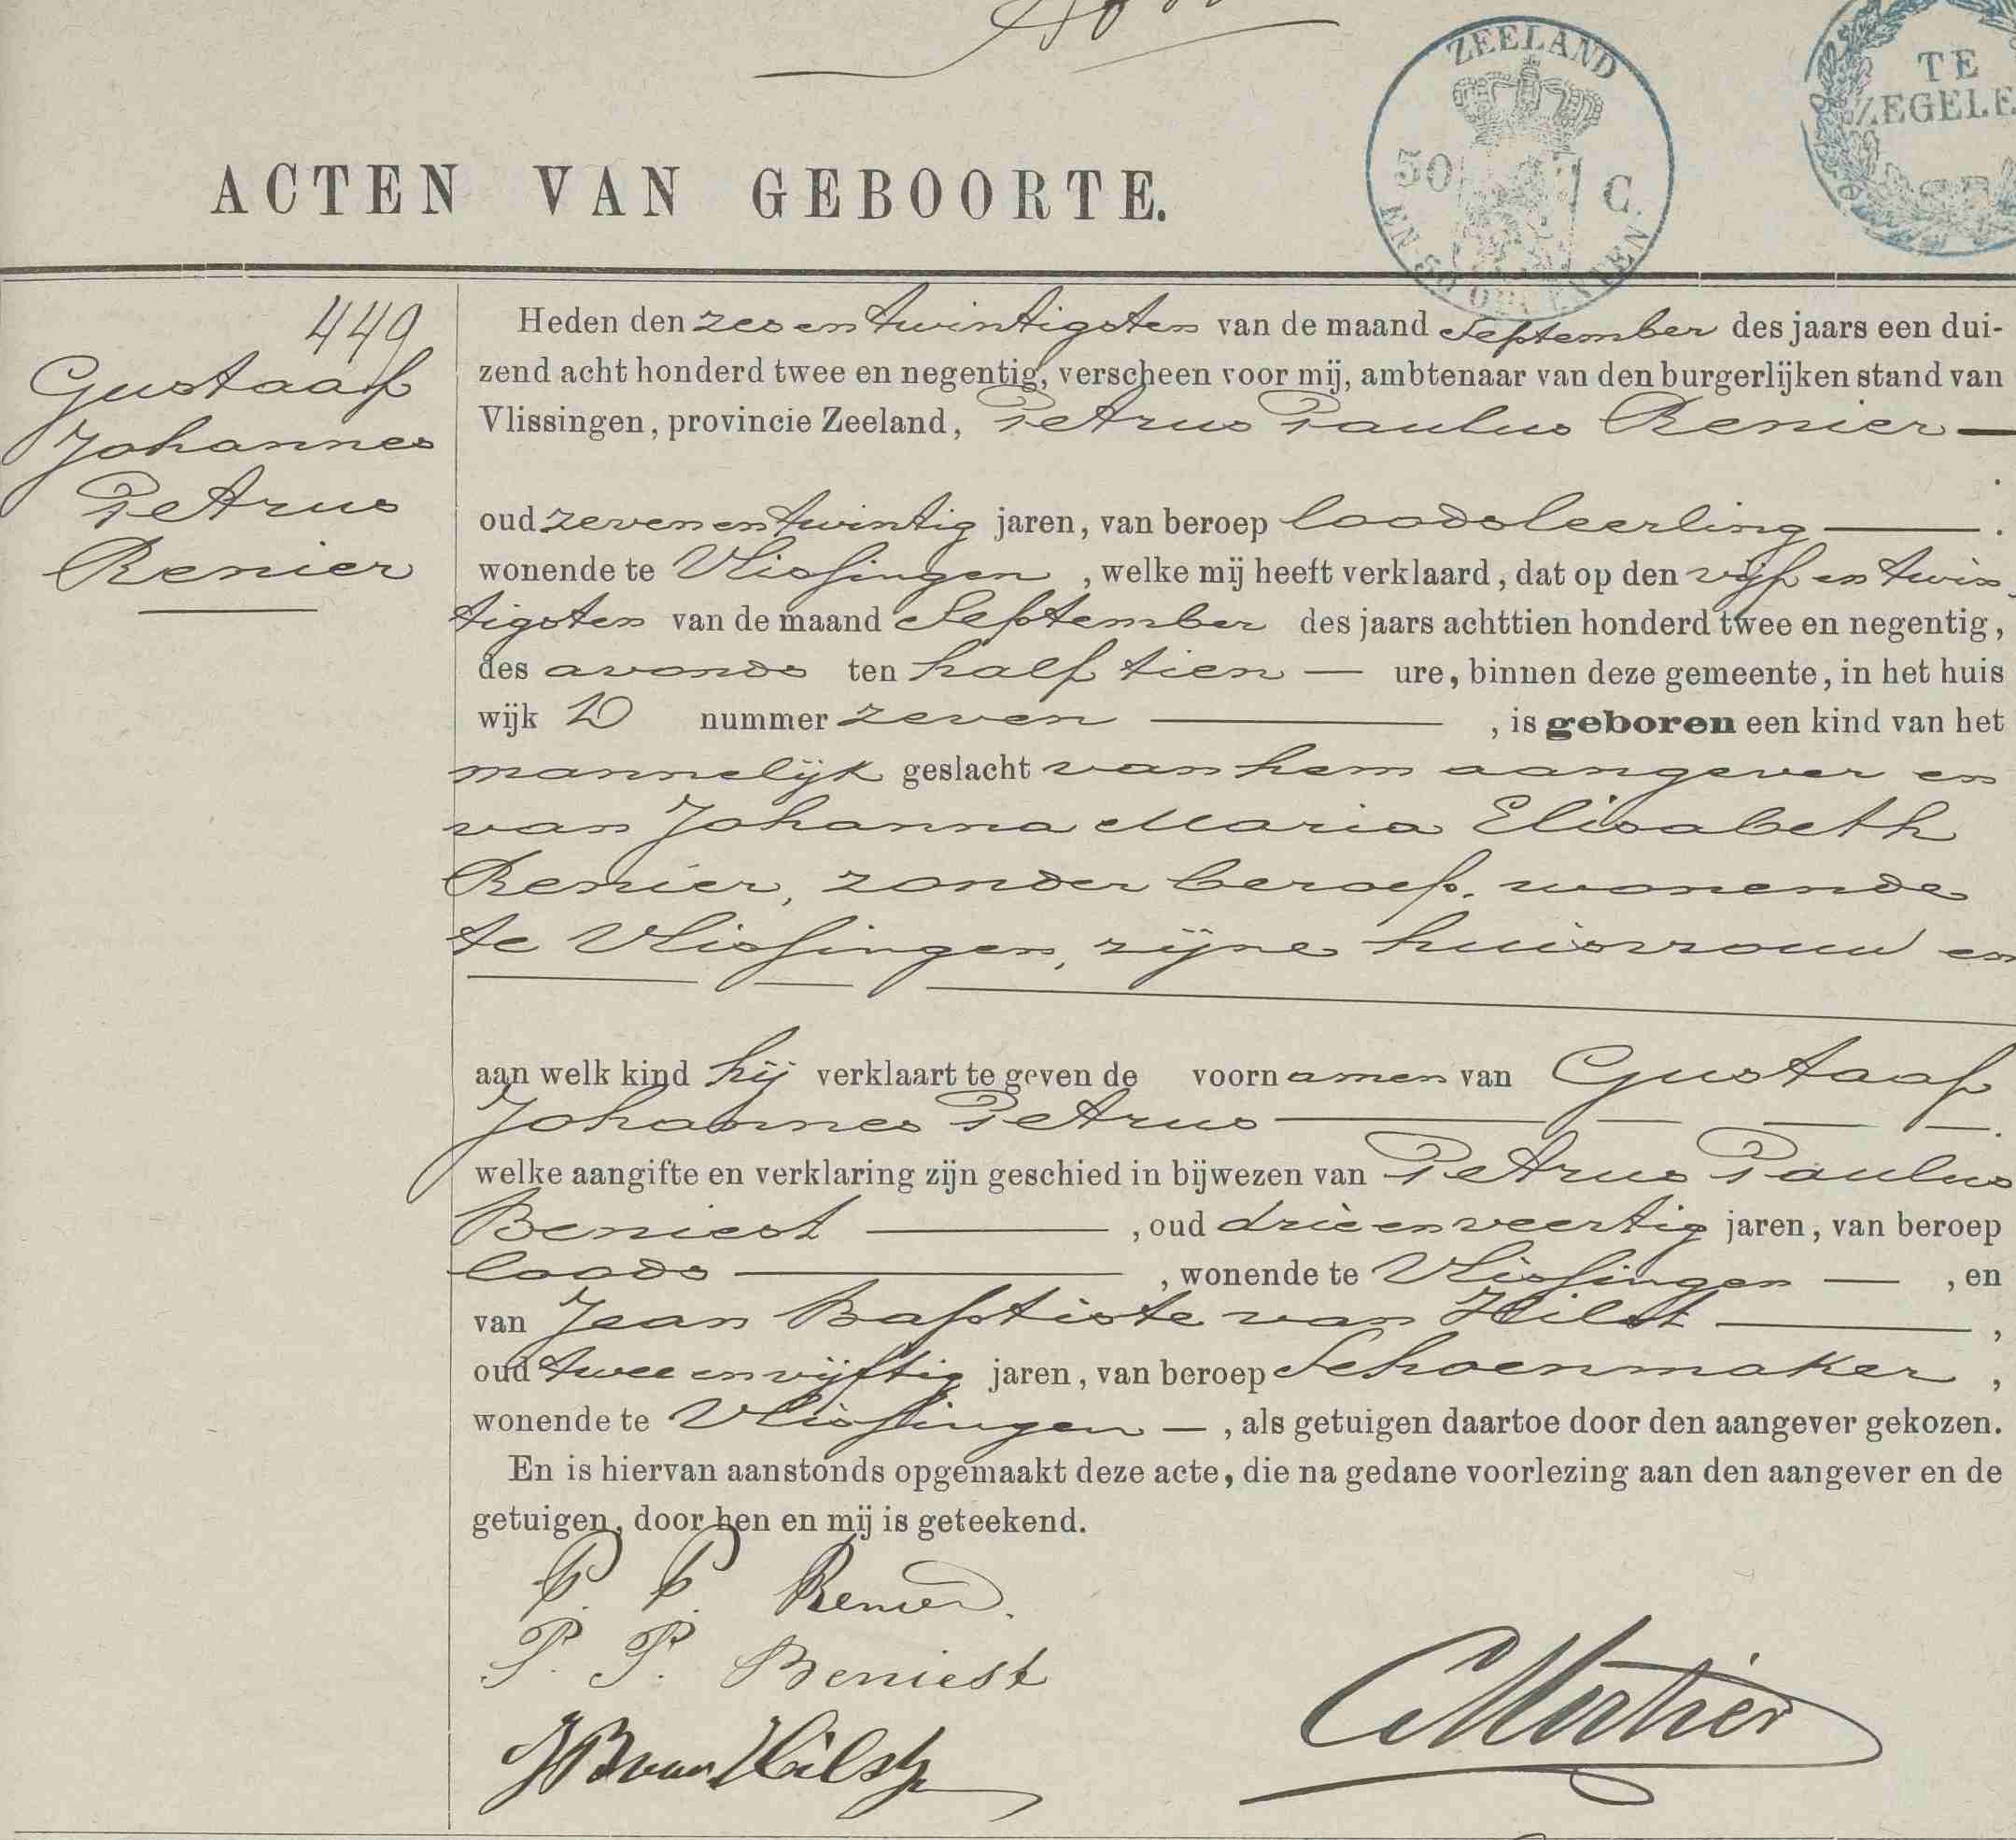 ZEELAND
50 C.
TE
ZEGELE
ACTEN VAN GEBOORTE.
449
Gustaaf
Johannes
Petrus
Renier
Heden den zes en twintigsten van de maand September des jaars een dui-
zend acht honderd twee en negentig, verscheen voor mij, ambtenaar van den burgerlijken stand van
Vlissingen, provincie Zeeland, Petrus Paulus Renier —
oud zeven en twintig jaren, van beroep loodsleerling — .
wonende te Vlissingen , welke mij heeft verklaard, dat op den vijf en twin
tigsten van de maand September des jaars achttien honderd twee en negentig,
des avonds ten half tien — ure, binnen deze gemeente, in het huis
wijk D nummer zeven — , is geboren een kind van het
mannelijk geslacht van hem aangever en
van Johanna Maria Elisabeth
Renier, zonder beroep, wonende
te Vlissingen, zijne huisvrouw en
aan welk kind hij verklaart te geven de voornamen van Gustaaf
Johannes Petrus — .
welke aangifte en verklaring zijn geschied in bijwezen van Petrus Paulus
Beniest — , oud drie en veertig jaren, van beroep
loods — , wonende te Vlissingen — , en
van Jean Baptiste van Hilst — ,
oud twee en vijftig jaren, van beroep Schoenmaker ,
wonende te Vlissingen — , als getuigen daartoe door den aangever gekozen.
En is hiervan aanstonds opgemaakt deze acte, die na gedane voorlezing aan den aangever en de
getuigen, door hen en mij is geteekend.
P. P. Renier.
P. P. Beniest
JB van Hilst
CMortier